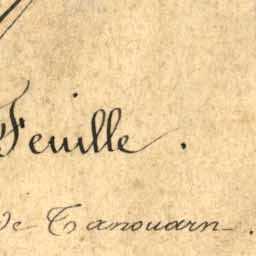 Feuille.
de Tanouarn.